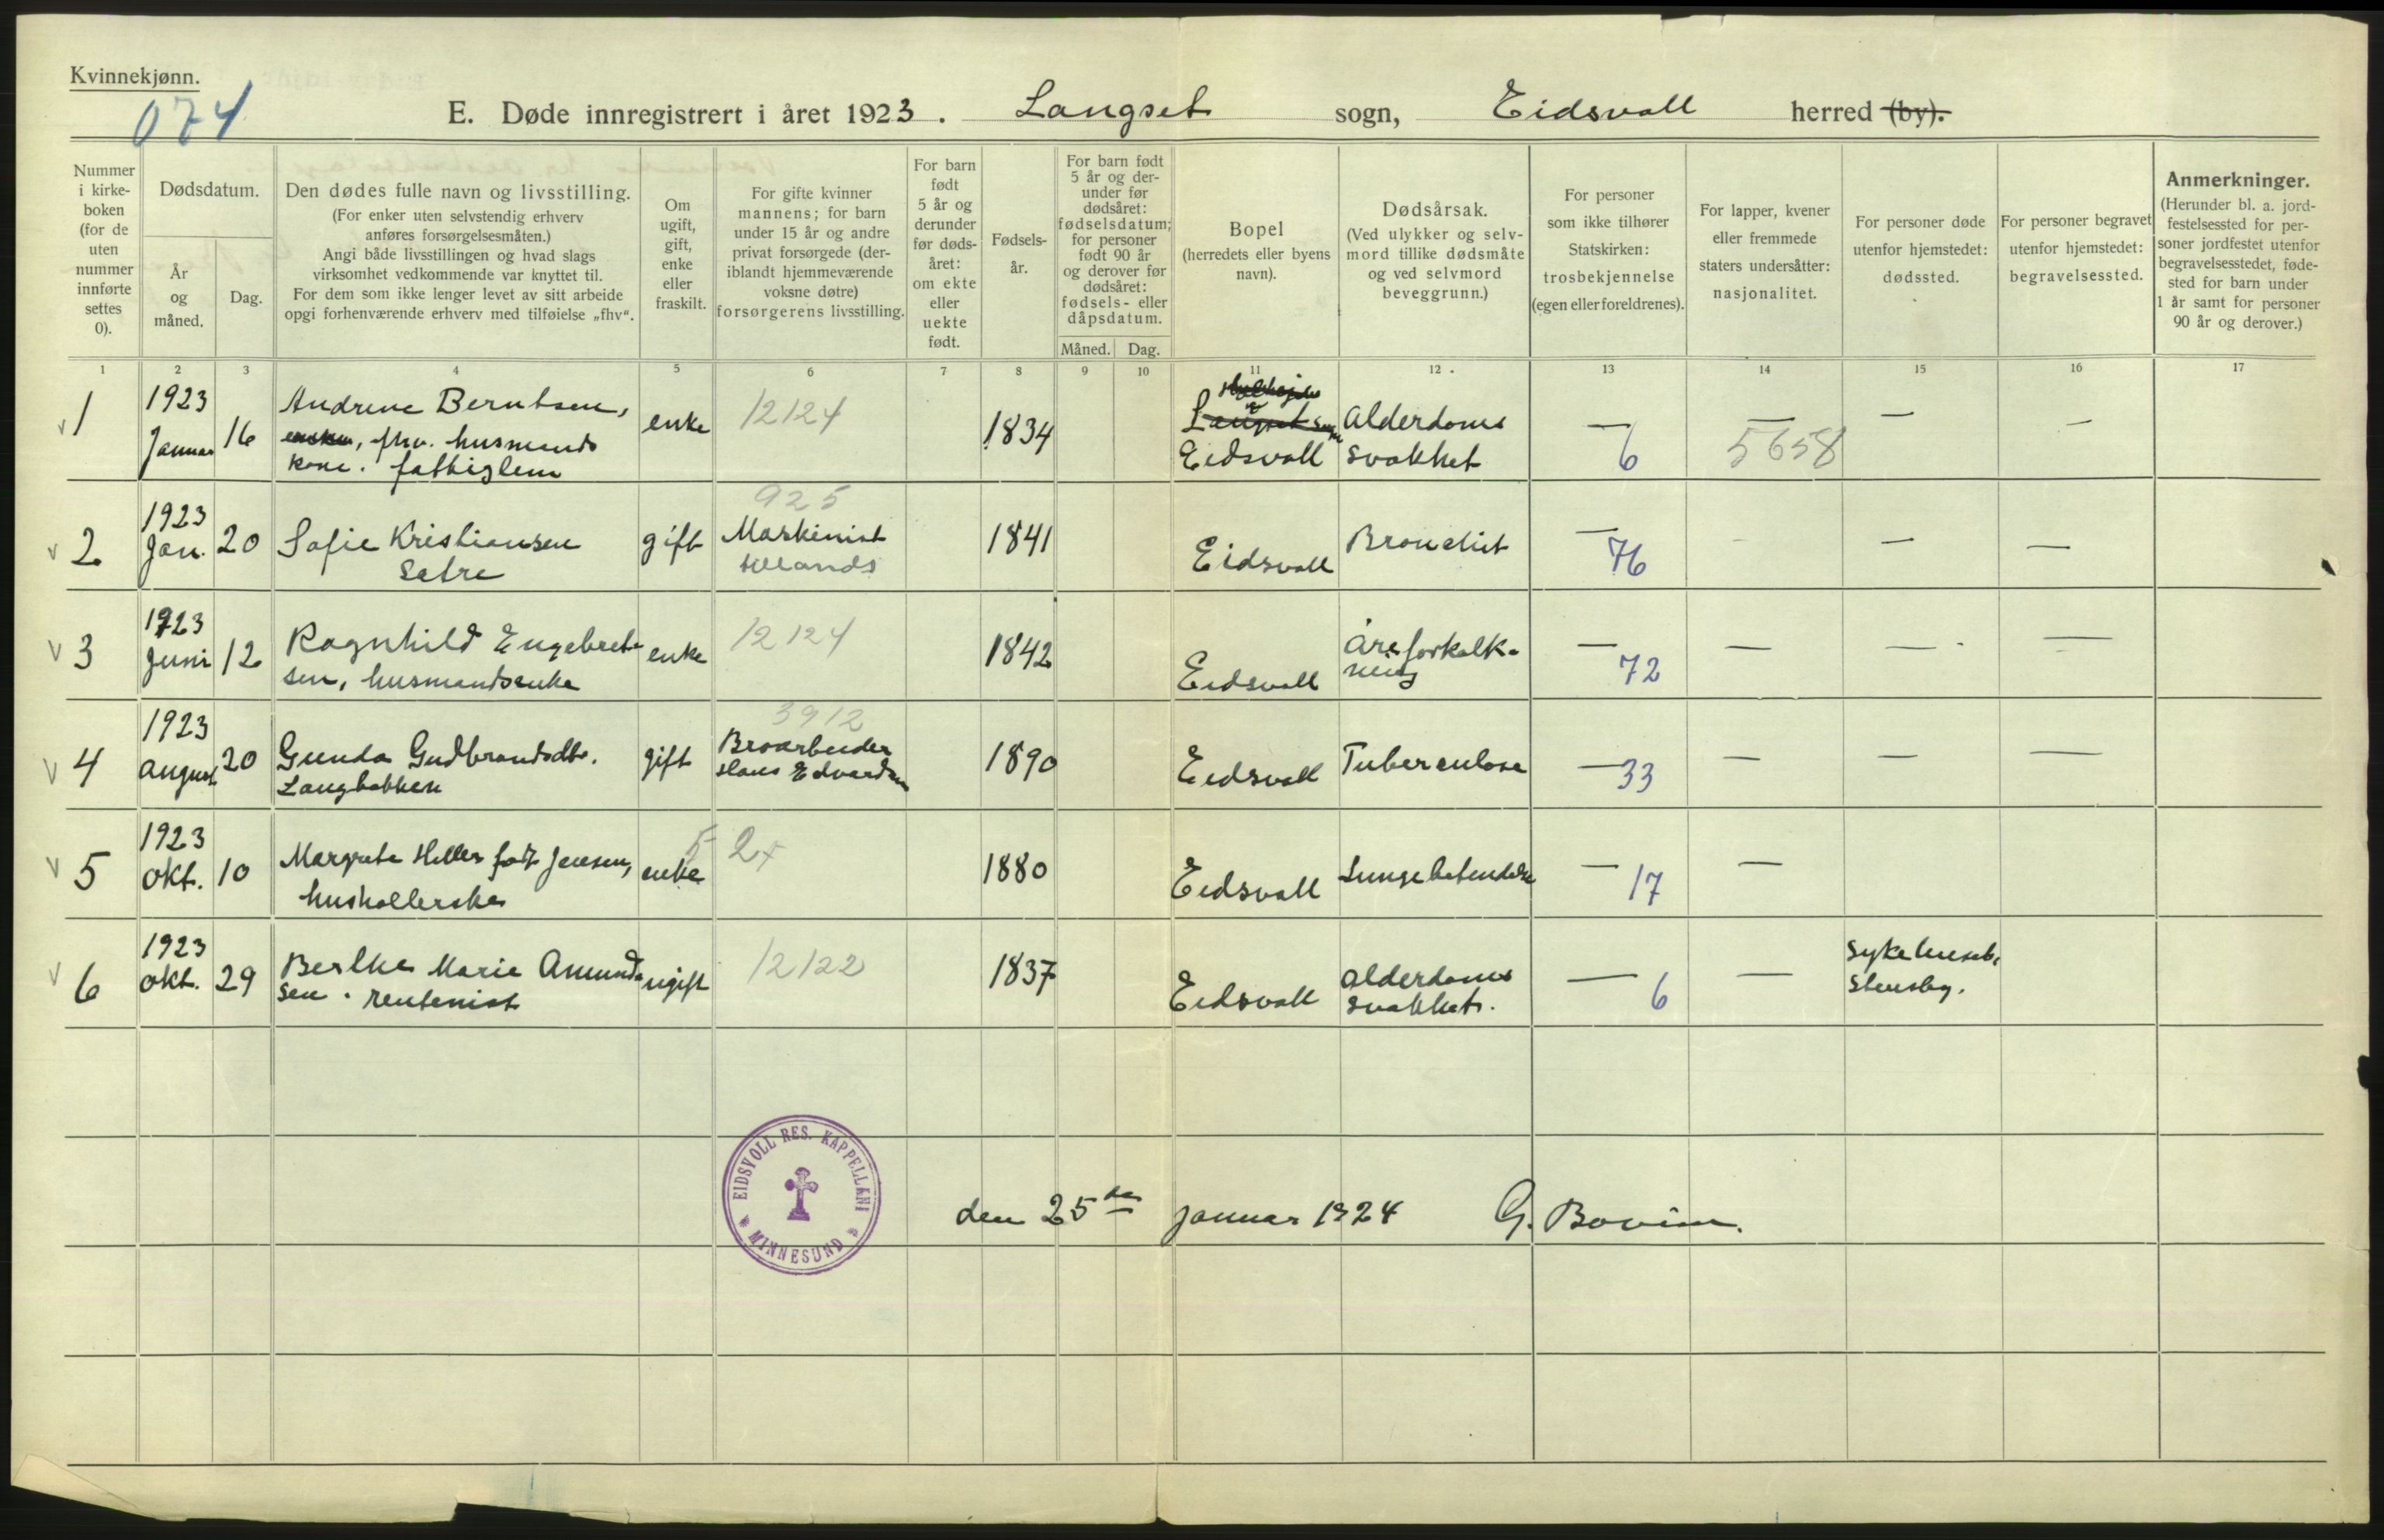 Kvinnekjønn.
074
E. Døde innregistrert i året 1923. Langset sogn, Eidsvoll herred (by).
Nummer i kirkeboken (for de uten nummer innførte settes 0).
Dødsdatum.
År og måned.
Dag.
Den dødes fulle navn og livsstilling.
(For enker uten selvstendig erhverv
anføres forsørgelsesmåten.)
Angi både livsstillingen og hvad slags
virksomhet vedkommende var knyttet til.
For dem som ikke lenger levet av sitt arbeide
opgi forhenværende erhverv med tilføielse „fhv“.
Om ugift, gift, enke eller fraskilt.
For gifte kvinner
mannens; for barn
under 15 år og andre
privat forsørgede (der-
iblandt hjemmeværende
voksne døtre)
forsørgerens livsstilling.
For barn
født
5 år og
derunder
før døds-
året:
om ekte
eller
uekte
født.
Fødsels-
år.
For barn født
5 år og der-
under før
dødsåret:
fødselsdatum;
for personer
født 90 år
og derover før
dødsåret:
fødsels- eller
dåpsdatum.
Måned. Dag.
Bopel
(herredets eller byens
navn).
Dødsårsak.
(Ved ulykker og selv-
mord tillike dødsmåte
og ved selvmord
beveggrunn.)
For personer
som ikke tilhører
Statskirken:
trosbekjennelse
(egen eller foreldrenes).
For lapper, kvener
eller fremmede
staters undersåtter:
nasjonalitet.
For personer døde
utenfor hjemstedet:
dødssted.
For personer begravet
utenfor hjemstedet:
begravelsessted.
Anmerkninger.
(Herunder bl. a. jord-
festelsessted for per-
soner jordfestet utenfor
begravelsesstedet, føde-
sted for barn under
1 år samt for personer
90 år og derover.)
1 2 3 4 5 6 7 8 9 10 11 12 13 14 15 16 17
1 1923 Januar 16 Andrine Berntsen, fhv. husmands kone. fattiglem enke 12124 1834 Langset sogn Eidsvoll Alderdoms svakhet — 6 — 5658 — —
2 1923 Jan. 20 Sofie Kristiansen Sætre gift 925 Maskinist 1841 Eidsvoll Bronchit — 76 — —
3 1923 Juni 12 Ragnhild Engebret- sen, husmandsenke enke 12124 1842 Eidsvoll Åreforkalk- ning — 72 — — —
4 1923 August 20 Gunda Gudbrandsdtr. Langbakken gift 3912 Broarbeider Hans Edvardsen 1890 Eidsvoll Tuberculose — 33 — — —
5 1923 Okt. 10 Margrete Hiller født Jensen, husholderske enke 5 2x 1880 Eidsvoll Lungebetendelse — 17 —
6 1923 Okt. 29 Berthe Marie Amund- sen. rentenist ugift 12122 1837 Eidsvoll Alderdoms svakhet. — 6 — Sykehuset, Stensby.
EIDSVOLL RES. KAPPELLANI
MINNESUND
den 25de januar 1924 G. Bovim.